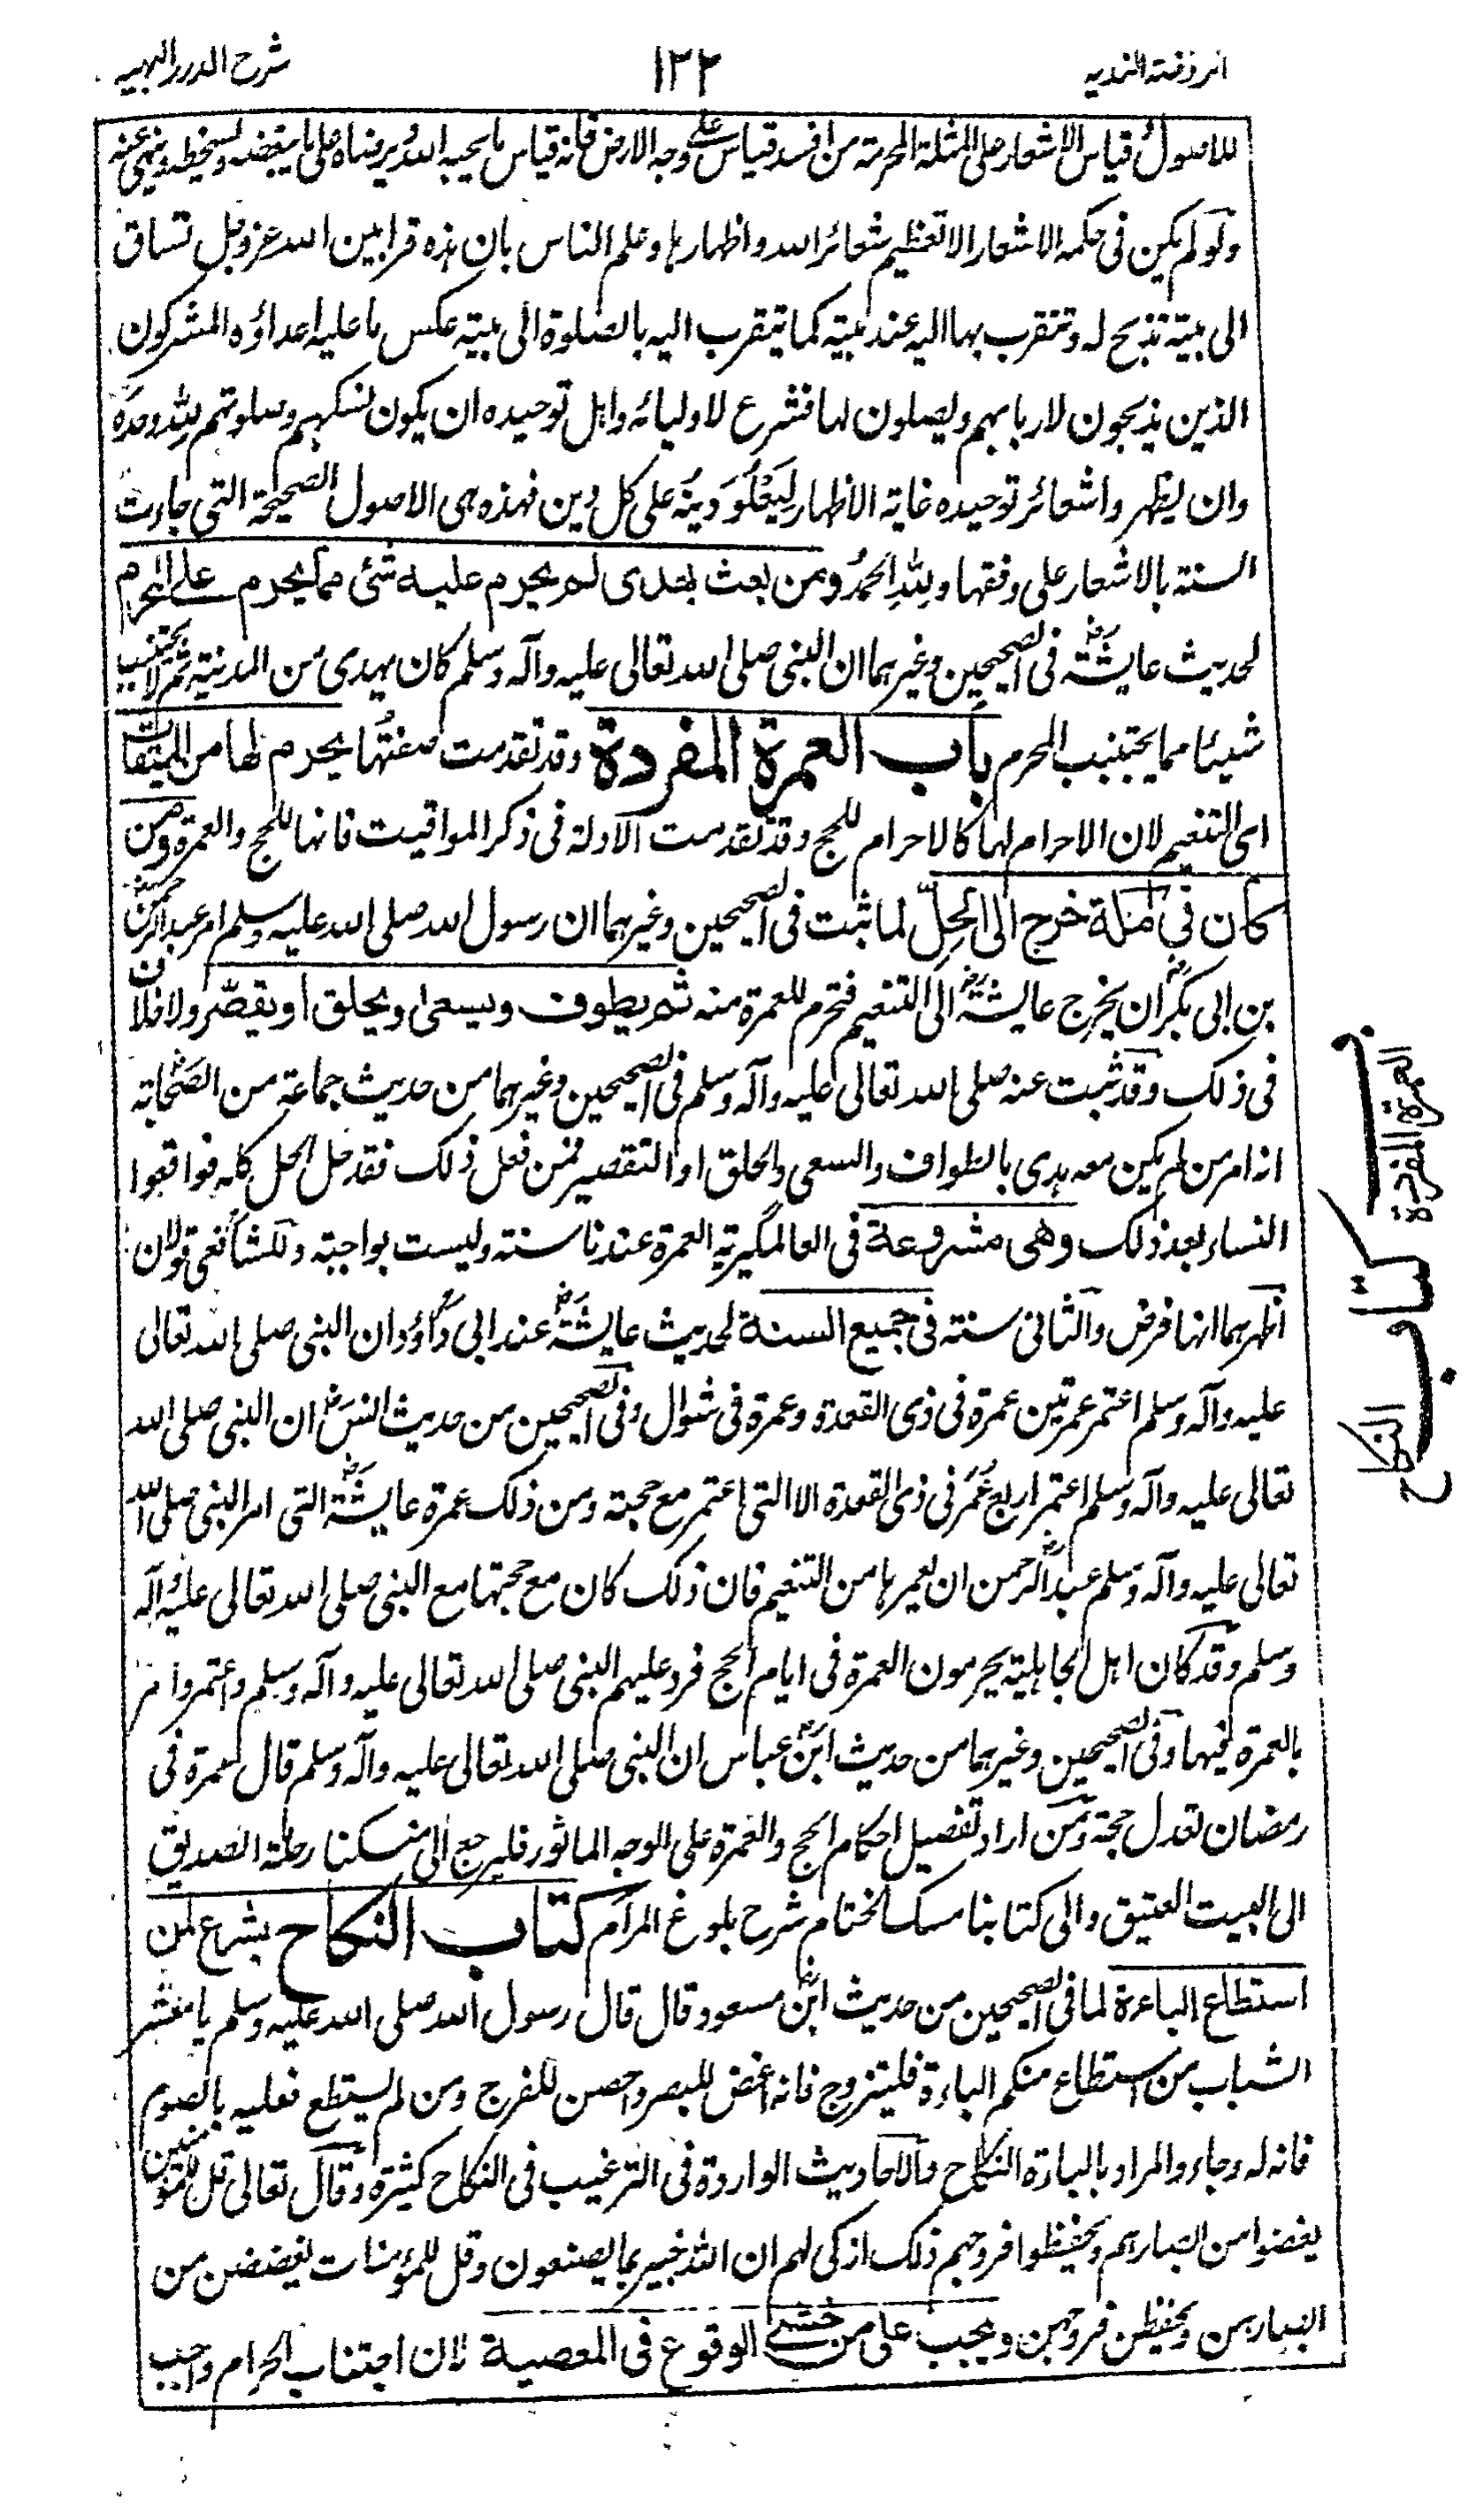 الروضة الندیہ ١٣٢ شرح الدرر البہیہ
للاصول قیاس الاشعار علی المثلة المحرمة من افسد قیاس علی وجہ الارض فانہ قیاس ما یحبہ اللہ ویرضاہ علی ما یبغضہ ویسخطہ وینہی عنہ
ولو لم یکن فی حکمہ الاشعار الا تعظیم شعائر اللہ واظہارہا وعلم الناس بان ہذہ قرابین اللہ عزوجل تساق
الی بیتہ تذبح لہ وتتقرب بہا الیہ عند بیتہ کما یتقرب الیہ بالصلوة الی بیتہ عکس ما علیہ اعداؤہ المشرکون
الذین یذبحون لاربابہم ویصلون لہا فشرع لاولیائہ واہل توحیدہ ان یکون نسکہم وصلوتہم للہ وحدہ
وان یظہروا شعائر توحیدہ غایة الاظہار لِیَعْلُوَ دِینُہ علی کل دین فہذہ ہی الاصول الصحیحة التی جاءت
السنة بالاشعار علی وفقہا وللہ الحمد ومن بعث بهدی لم یحرم علیہ شئ مما یحرم علی المحرم
لحدیث عایشة رض فی الصحیحین وغیرہما ان النبی صلی اللہ تعالی علیہ وآلہ وسلم کان یہدی من المدینة ثم لا یجتنب
شیئا مما یجتنب المحرم باب العمرة المفردة وقد تقدمت صفتها یحرم لها من المیقات
ای التنعیم لان الاحرام لہا کالاحرام للحج وقد تقدمت الادلة فی ذکر المواقیت فانہا للحج والعمرة ومن
کان فی مکة خرج الی الحِلّ لما ثبت فی الصحیحین وغیرہما ان رسول اللہ صلی اللہ علیہ وسلم امر عبد الرحمن
بن ابی بکر رض ان یخرج عایشة رض الی التنعیم فتحرم للعمرة منہ ثم یطوف ویسعی ویحلق او یقصّر ولا خلاف
فی ذلک وقد ثبت عنہ صلی اللہ تعالی علیہ وآلہ وسلم فی الصحیحین وغیرہما من حدیث جماعة من الصحابة
انہ امر من لم یکن معہ ہدی بالطواف والسعی والحلق او التقصیر فمن فعل ذلک فقد حل الحل کلہ فواقعوا
النساء بعد ذلک وهی مشروعة فی العالمگیریة العمرة عندنا سنة ولیست بواجبة وللشافعی قولان
اظہرہما انہا فرض والثانی سنة فی جمیع السنة لحدیث عایشة رض عند ابی داؤد ان النبی صلی اللہ تعالی
علیہ وآلہ وسلم اعتمر عمرتین عمرة فی ذی القعدة وعمرة فی شوال وفی الصحیحین من حدیث انس رض ان النبی صلی اللہ
تعالی علیہ وآلہ وسلم اعتمر اربع عُمَر فی ذی القعدة الا التی اعتمر مع حجتہ ومن ذلک عمرة عایشة رض التی امر النبی صلی اللہ
تعالی علیہ وآلہ وسلم عبد الرحمن رض ان یعمرہا من التنعیم فان ذلک کان مع حجتہا مع النبی صلی اللہ تعالی علیہ وآلہ
وسلم وقد کان اہل الجاہلیة یحرمون العمرة فی ایام الحج فرد علیہم النبی صلی اللہ تعالی علیہ وآلہ وسلم واعتمر وامر
بالعمرة فیہا وفی الصحیحین وغیرہما من حدیث ابن رض عباس ان النبی صلی اللہ تعالی علیہ وآلہ وسلم قال عمرة فی
رمضان تعدل حجة ومن اراد تفصیل احکام الحج والعمرة علی الوجہ الماثور فلیرجع الی منسکنا رحلة الصدیق
الی البیت العتیق والی کتابنا مسک الختام شرح بلوغ المرام کتاب النکاح یشرع لمن
استطاع الباءة لما فی الصحیحین من حدیث ابن رض مسعود قال قال رسول اللہ صلی اللہ علیہ وسلم یا معشر
الشباب من استطاع منکم الباءة فلیتزوج فانہ اغض للبصر واحصن للفرج ومن لم یستطع فعلیہ بالصوم
فانہ لہ وجاء والمراد بالباءة النکاح والاحادیث الواردة فی الترغیب فی النکاح کثیرة وقال تعالی قل للمؤمنین
یغضوا من ابصارہم ویحفظوا فروجہم ذلک ازکی لہم ان اللہ خبیر بما یصنعون وقل للمؤمنات یغضضن من
ابصارہن ویحفظن فروجہن ویجب علی من خشی الوقوع فی المعصیة لان اجتناب الحرام واجب
باب العمرة المفردة
کتاب النکاح